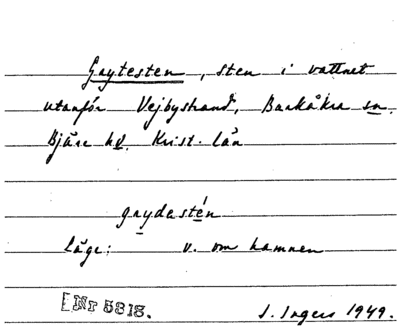 Grytesten, sten i vattnet
utanför Vejbystrand, Barkåkra sn.
Bjäre hd. Krist. län
grydestén
läge: v. om hamnen
[Nr 5818.
I. Ingers 1949.